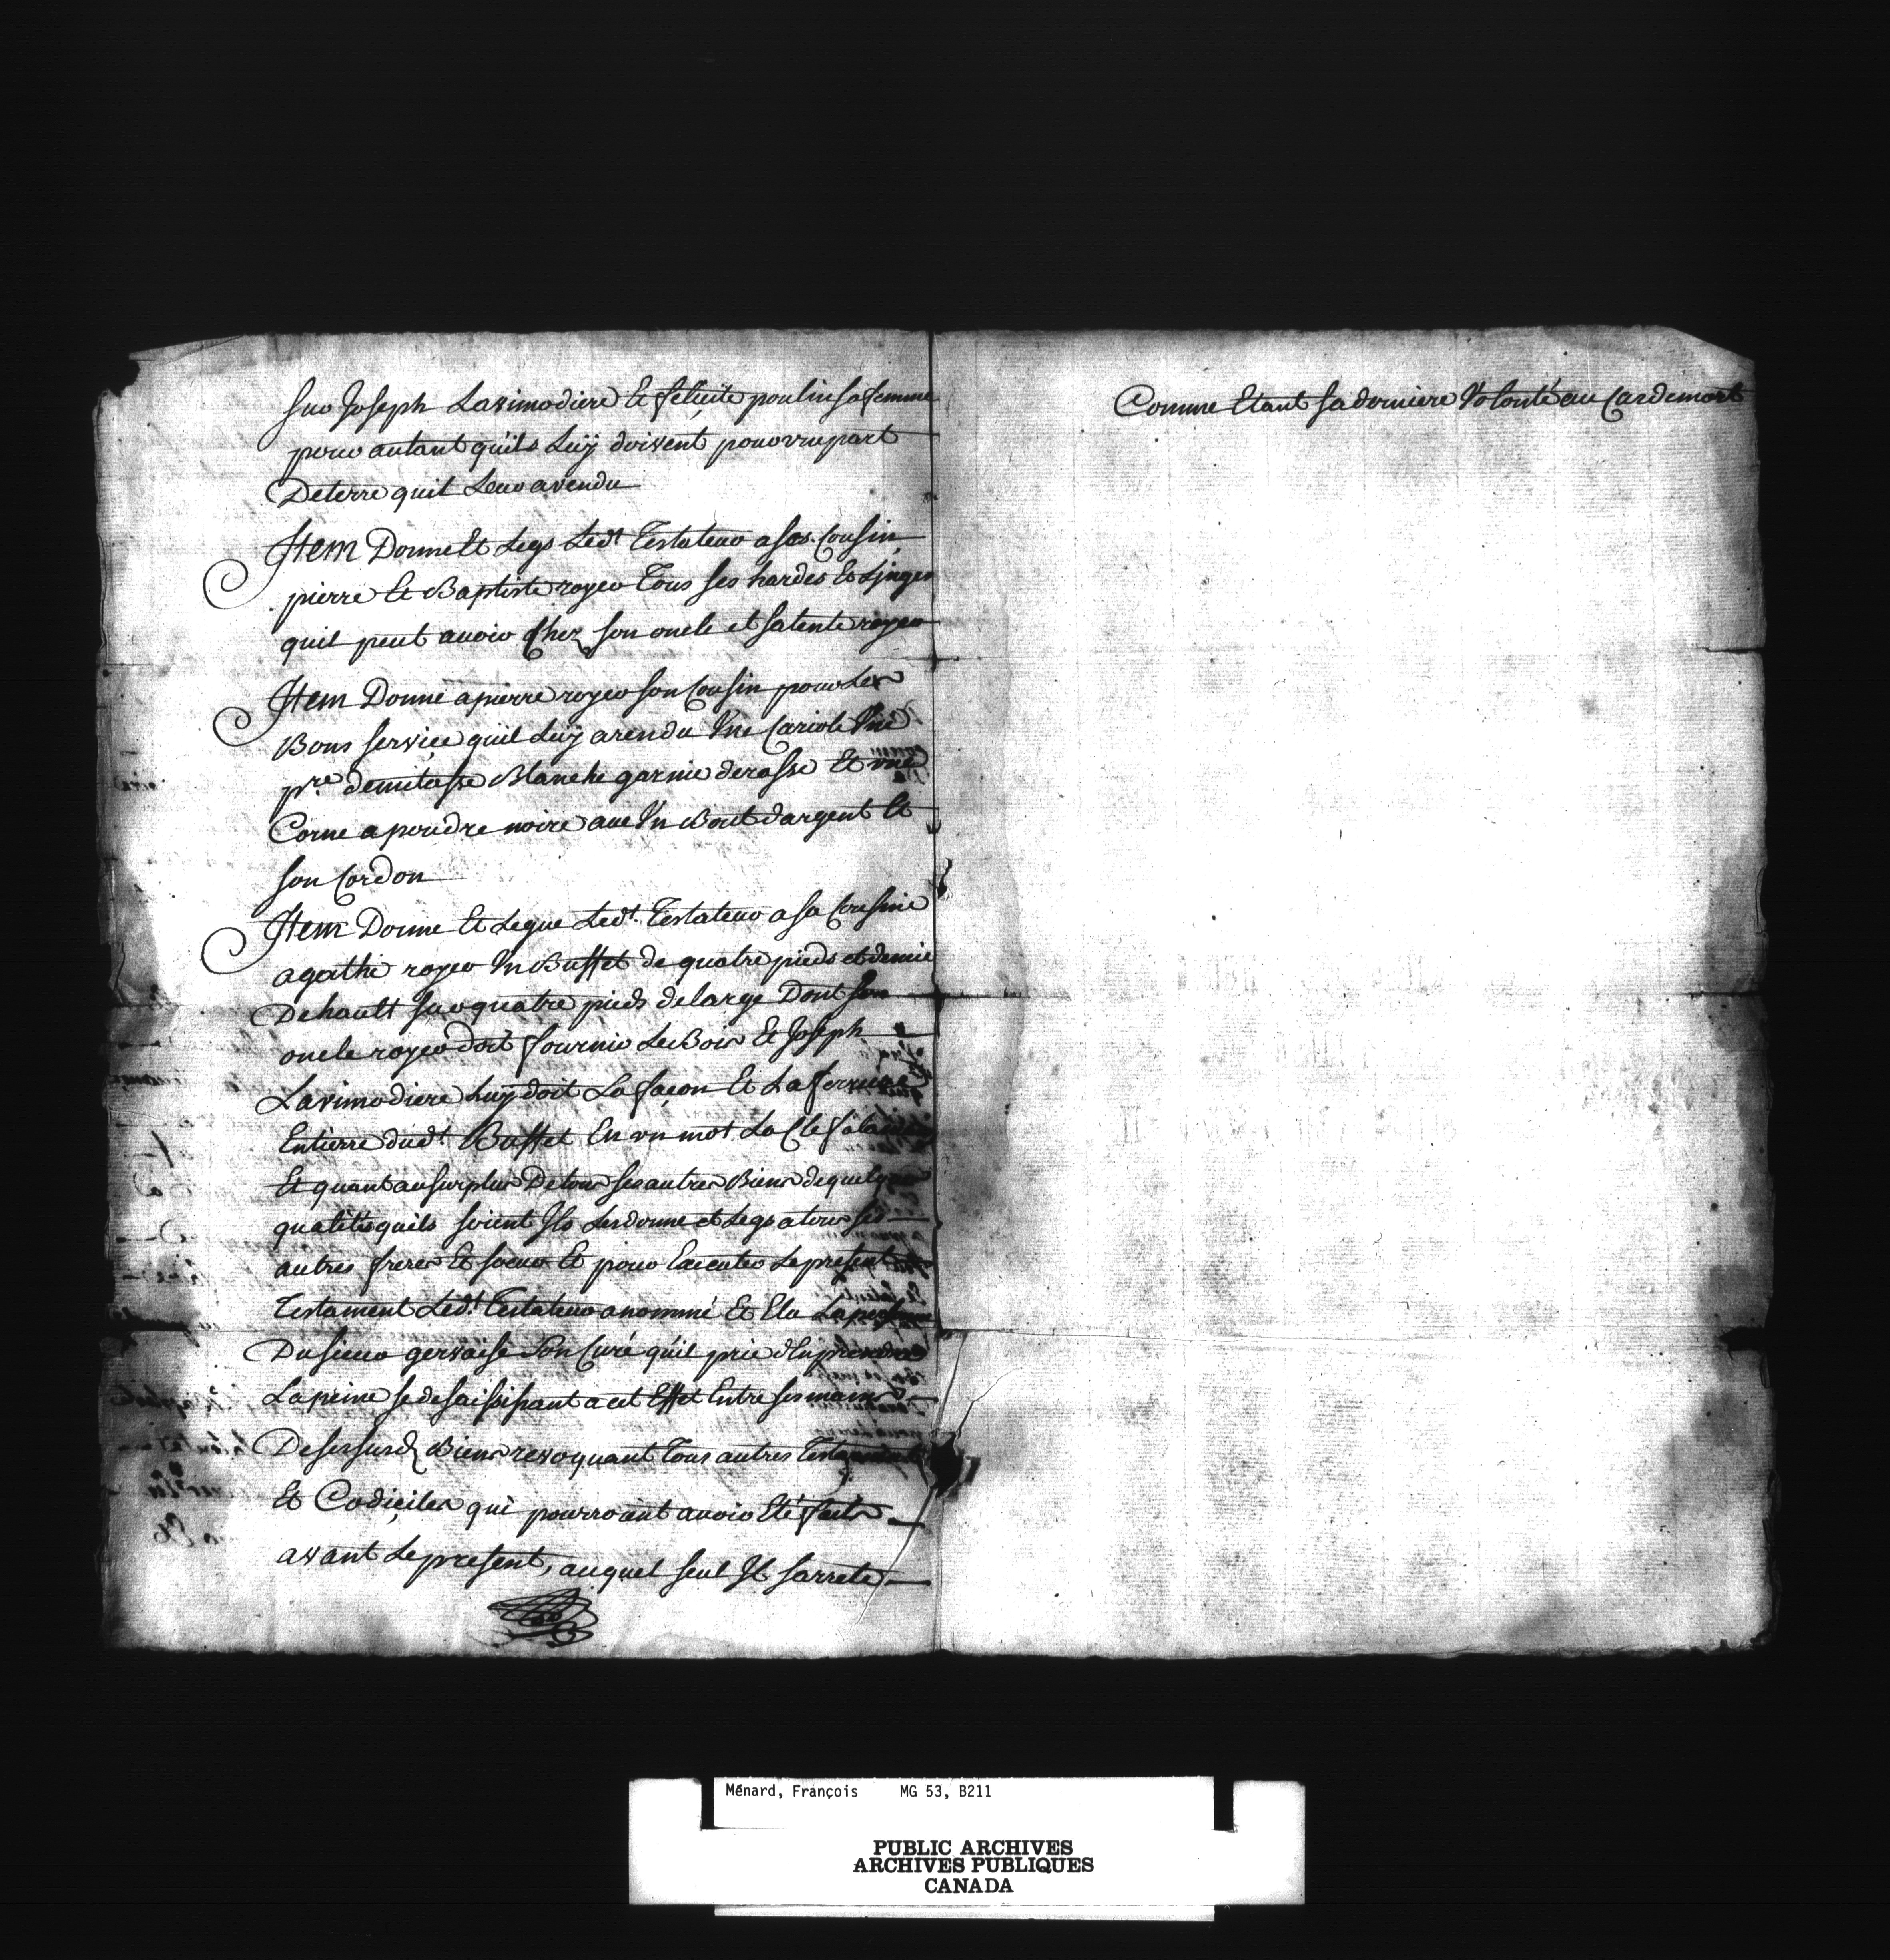 sur Joseph Lavimodiere Et felicite poulin sa femme
pour autant qu'ils Luÿ doivent pour vne part
De terre quil Leur a vendu
Item Donne Et Legs Led.t Testateur a ses Cousin
pierre Et Baptiste royer Tous ses hardes Et Linges
quil peut avoir Chez son oncle et sa tente royer
Item Donne a pierre royer son Cousin pour Les
Bons service quil Luÿ a rendu Vne Cariole Vne
p.re demitasse Blanche garnie de rasse Et vne
Corne a poudre noire avec Vn Bout dargent Et
son Cordon
Item Donne Et Legue Led.t Testateur a sa Cousine
agathe royer Vn Buffet de quatre pieds et demie
De hault sur quatre pieds de large Dont son
oncle royer doit fournir Le Bois Et Joseph
Lavimodiere Luÿ doit La façon Et La ferrure
Entierre dud.t Buffet En vn mot La Cle
Et quant au surplus De tous ses autres Biens de quelques
qualités quils soient Ils Les donne et Legs a tous ses
autres freres Et soeur Et pour Executer Le present
Testament Led.t Testateur a nommé Et Elu La personne
Du sieur gervaise Son Curé quil prie d'En prendre
La peine se desaisissant a cet Effet Entre ses mains
De ses susd. Biens revoquant Tous autres Testaments
Et Codiciles qui pourroint avoir Eté faits
avant Le present, auquel seul Il sarrete
Comme Etant sa derniere Volonté au Cas de mort
Ménard, François MG 53, B211
PUBLIC ARCHIVES
ARCHIVES PUBLIQUES
CANADA